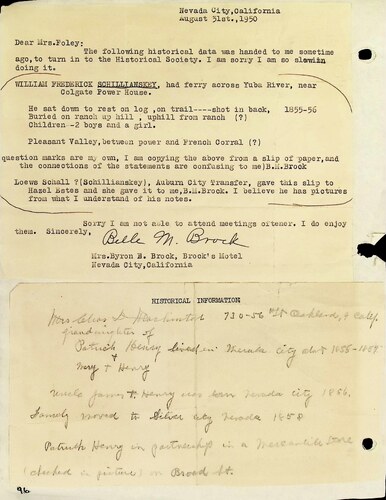 Nevada City,California
August 31st.,1950
Dear Mrs.Foley:
The following historical data was handed to me sometime
ago,to turn in to the Historical Society. I am sorry I am so slow in
doing it.
WILLIAM FREDERICK SCHILLIANSKEY, had ferry across Yuba River, near
Colgate Power House.
He sat down to rest on log ,on trail----shot in back, 1855-56
Buried on ranch up hill , uphill from ranch (?)
Children -2 boys and a girl.
Pleasant Valley,between power and French Corral (?)
question marks are my own, I am copying the above from a slip of paper,and
the connections of the statements are confusing to me)B.M.Brock
Loews Schall ?(Schillianskey), Auburn City Transfer, gave this slip to
Hazel Bates and she gave it to me,B.M.Brock. I believe he has pictures
from what I understand of his notes.
Sorry I am not able to attend meetings oftener. I do enjoy
them. Sincerely,
Belle M. Brock
Mrs.Byron N. Brock, Brock's Motel
Nevada City,California
HISTORICAL INFORMATION
Mrs. Chas D. Washington 730-56 St Oakland, Calif.
grandaughter of
Patrick Henry lived in Nevada City abt 1855-1857
Mary F Henry
Uncle James T. Henry was born Nevada City 1856.
Family moved to Silver City Nevada 1858
Patrick Henry in partnership in a Mercantile Store
(checked a picture) on Broad St.
96